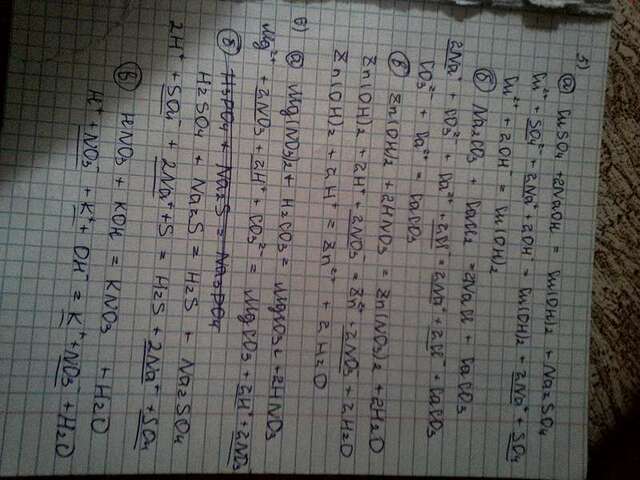 5)
а) CuSO4 + 2NaOH = Cu(OH)2 + Na2SO4
Cu²⁺ + SO4²⁻ + 2Na⁺ + 2OH⁻ = Cu(OH)2 + 2Na⁺ + SO4
Cu²⁺ + 2OH⁻ = Cu(OH)2
б) Na2CO3 + CaCl2 = 2NaCl + CaCO3
2Na⁺ + CO3²⁻ + Ca²⁺ + 2Cl⁻ = 2Na⁺ + 2Cl⁻ + CaCO3
CO3²⁻ + Ca²⁺ = CaCO3
в) Zn(OH)2 + 2HNO3 = Zn(NO3)2 + 2H2O
Zn(OH)2 + 2H⁺ + 2NO3⁻ = Zn²⁺ + 2NO3 + 2H2O
Zn(OH)2 + 2H⁺ = Zn²⁺ + 2H2O
6)
а) Mg(NO3)2 + H2CO3 = MgCO3 + 2HNO3
Mg²⁺ + 2NO3 + 2H⁺ + CO3²⁻ = MgCO3 + 2H⁺ + 2NO3⁻
б) H3PO4 + Na2S = Na3PO4
H2SO4 + Na2S = H2S + Na2SO4
2H⁺ + SO4⁻ + 2Na⁺ + S = H2S + 2Na⁺ + SO4
в) HNO3 + KOH = KNO3 + H2O
H⁺ + NO3⁻ + K⁺ + OH⁻ = K⁺ + NO3⁻ + H2O